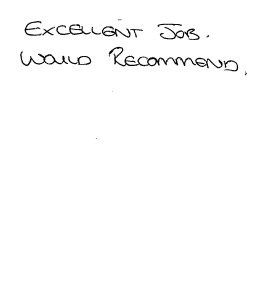 EXCELLENT JOB.
WOULD RECOMMEND.